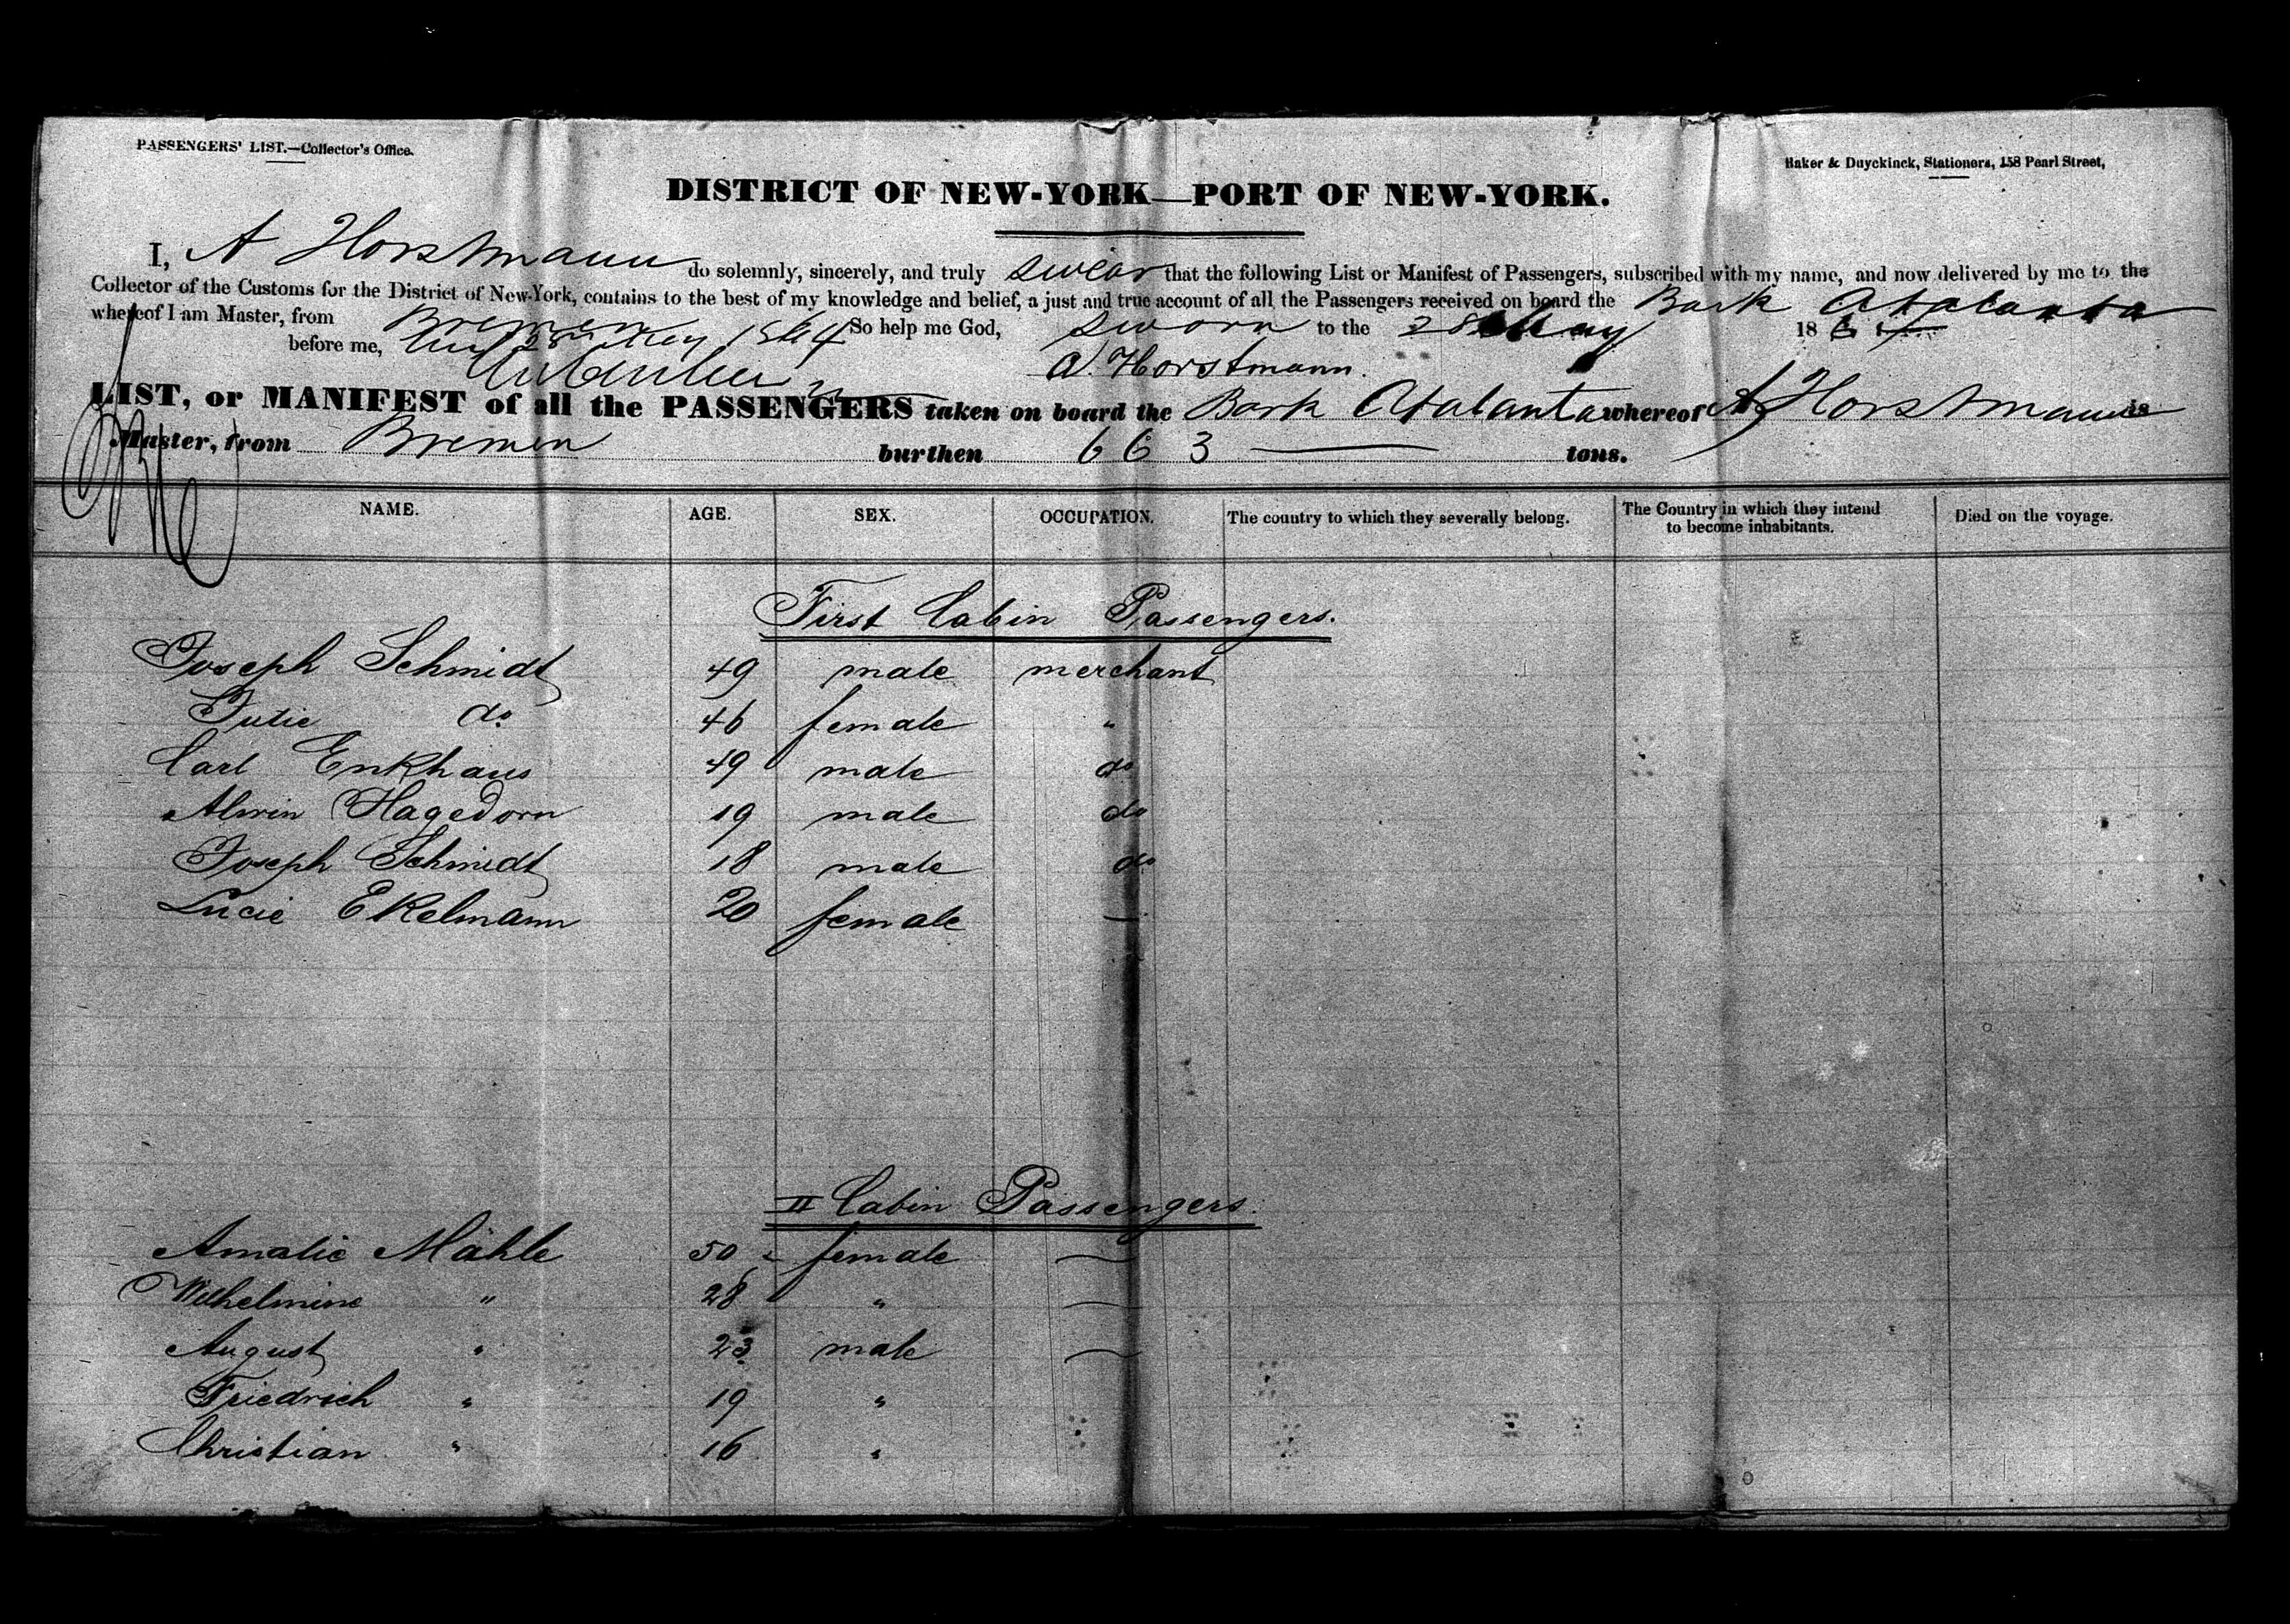 PASSENGERS' LIST.—Collector's Office.
Baker & Duyckinck, Stationers, 158 Pearl Street,
DISTRICT OF NEW-YORK—PORT OF NEW-YORK.
I, A Horstmann do solemnly, sincerely, and truly swear that the following List or Manifest of Passengers, subscribed with my name, and now delivered by me to the
Collector of the Customs for the District of New-York, contains to the best of my knowledge and belief, a just and true account of all the Passengers received on board the Bark Atalanta
whereof I am Master, from Bremen So help me God, sworn to the 28 May 1864
before me, 28 May 1864 A. Horstmann.
LIST, or MANIFEST of all the PASSENGERS taken on board the Bark Atalanta whereof A Horstmann is
Master, from Bremen burthen 663 — tons.
NAME. AGE. SEX. OCCUPATION. The country to which they severally belong. The Country in which they intend to become inhabitants. Died on the voyage.
First Cabin Passengers.
Joseph Schmidt 49 male merchant
Jutie do 46 female "
Carl Enkhaus 49 male do
Alwin Hagedorn 19 male do
Joseph Schmidt 18 male do
Lucie Ekelmann 20 female —
II Cabin Passengers.
Amalie Mähle 50 female —
Wilhelmine " 28 " —
August " 23 male —
Friedrich " 19 "
Christian " 16 "